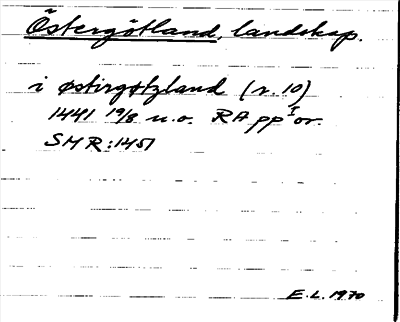 Östergötland, landskap.
i østirgøtzland (r. 10)
1441 19/8 u.o. RApp I or.
SMR: 1451
E.L. 1970